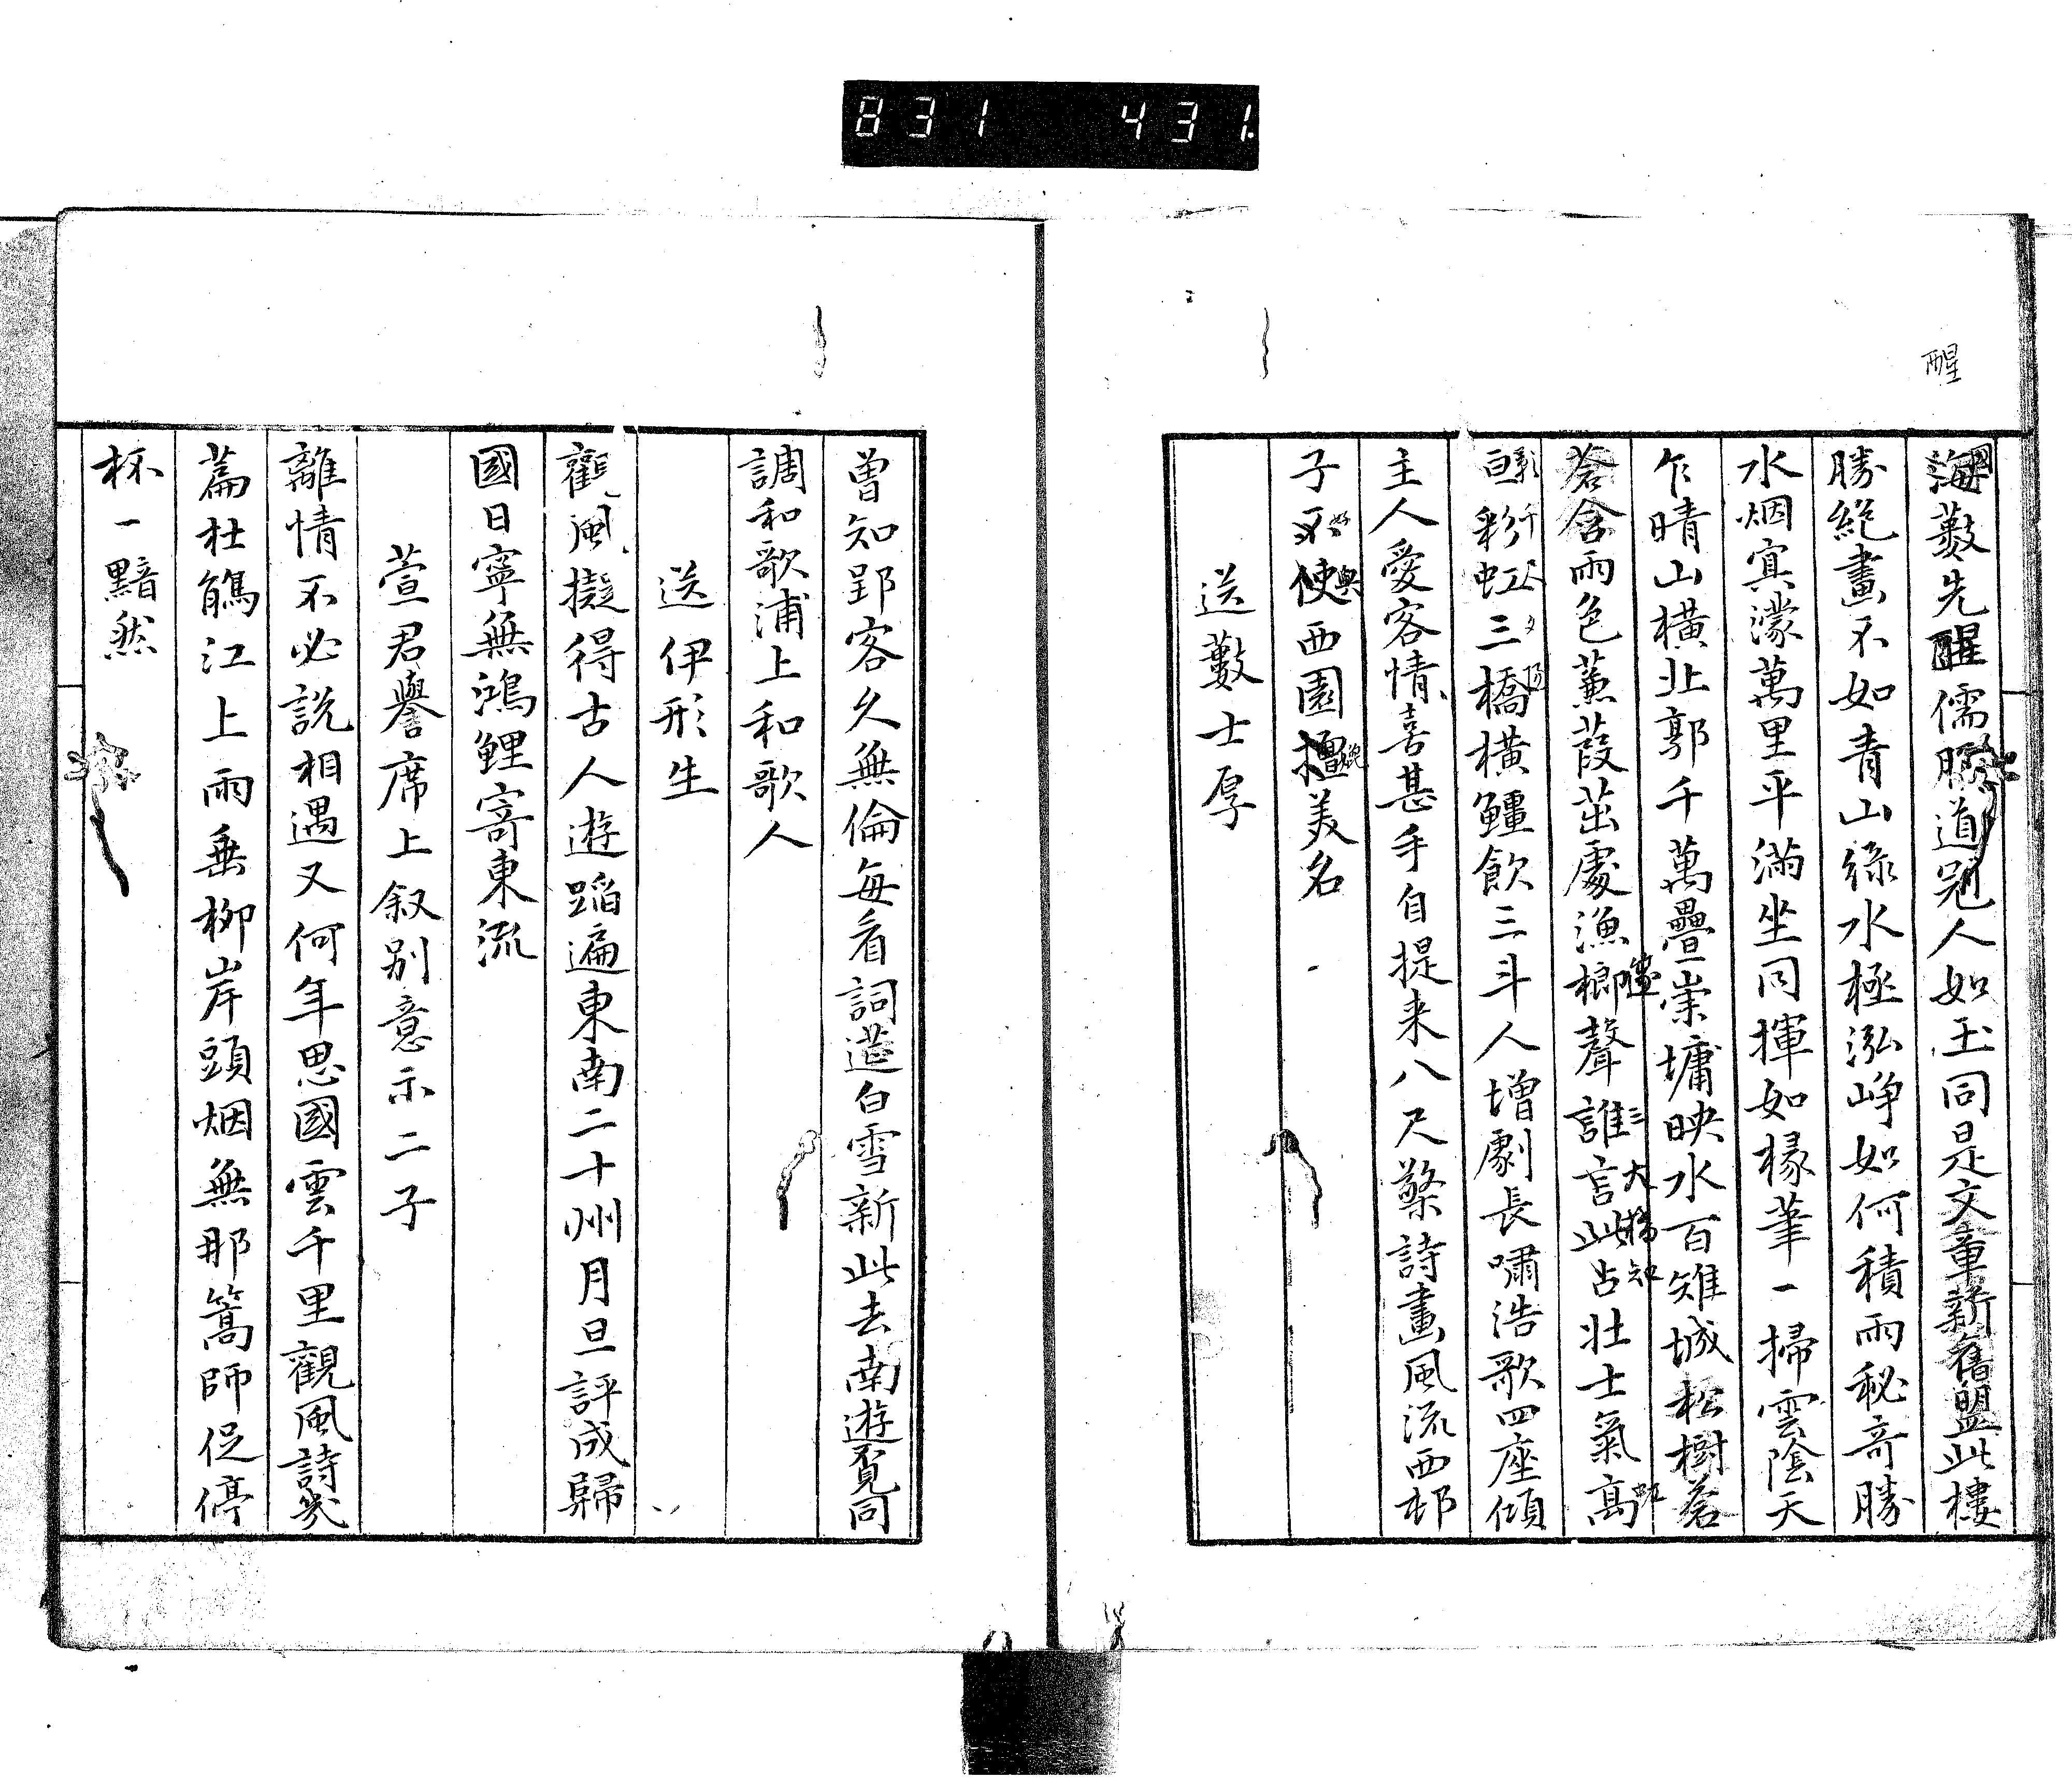 831 431.
醒
海藪先醒儒服道冠人如玉同是文章新舊盟此樓
勝絶畫不如青山緑水極泓崢如何積雨秘奇勝
水烟寘濛萬里平滿坐同揮如椽筆一掃雲陰天
乍晴山橫北郭千萬疊崇墉映水百雉城松樹蒼
蒼含雨色蒹葭茁處漁榔聲誰言此占壮士氣高
彩虹三橋橫鱷飲三斗人增劇長嘯浩歌四座傾
主人愛客情喜甚手自提来八尺檠詩畫風流西邨
子不使西園擅美名
送藪士厚
曽知郢客久無倫毎看詞莚白雪新此去南遊寛同
調和歌浦上和歌人
送伊形生
觀風擬得古人遊蹈遍東南二十州月旦評成歸
國日寧無鴻鯉寄東流
萱君譽席上叙别意示二子
離情不必説相遇又何年思國雲千里觀風詩幾
篇杜鵑江上雨垂柳岸頭烟無那篙師促停
杯一黯然